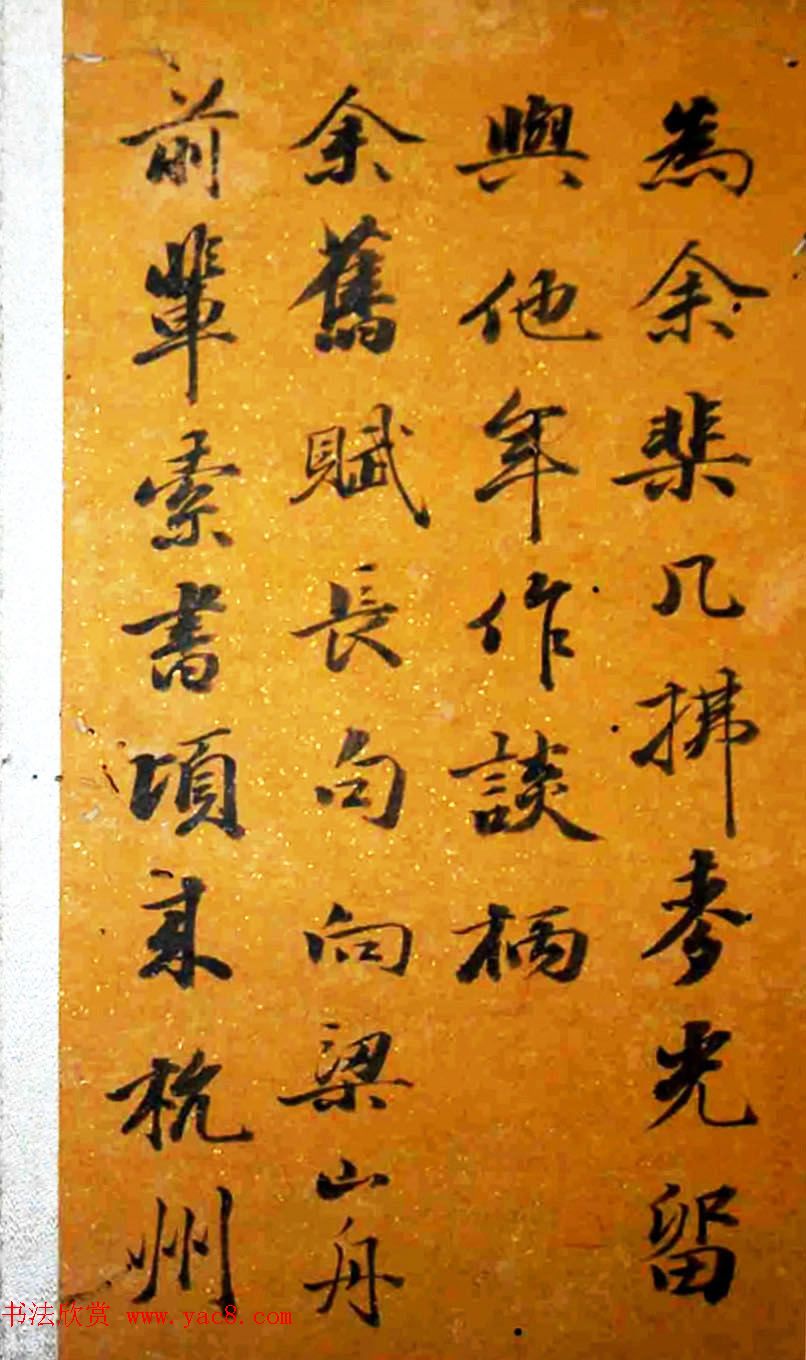 為余棐几拂麥光留
與他年作談柄
余舊賦長句向梁山舟
前輩索書頃來杭州
书法欣赏 www.yac8.com